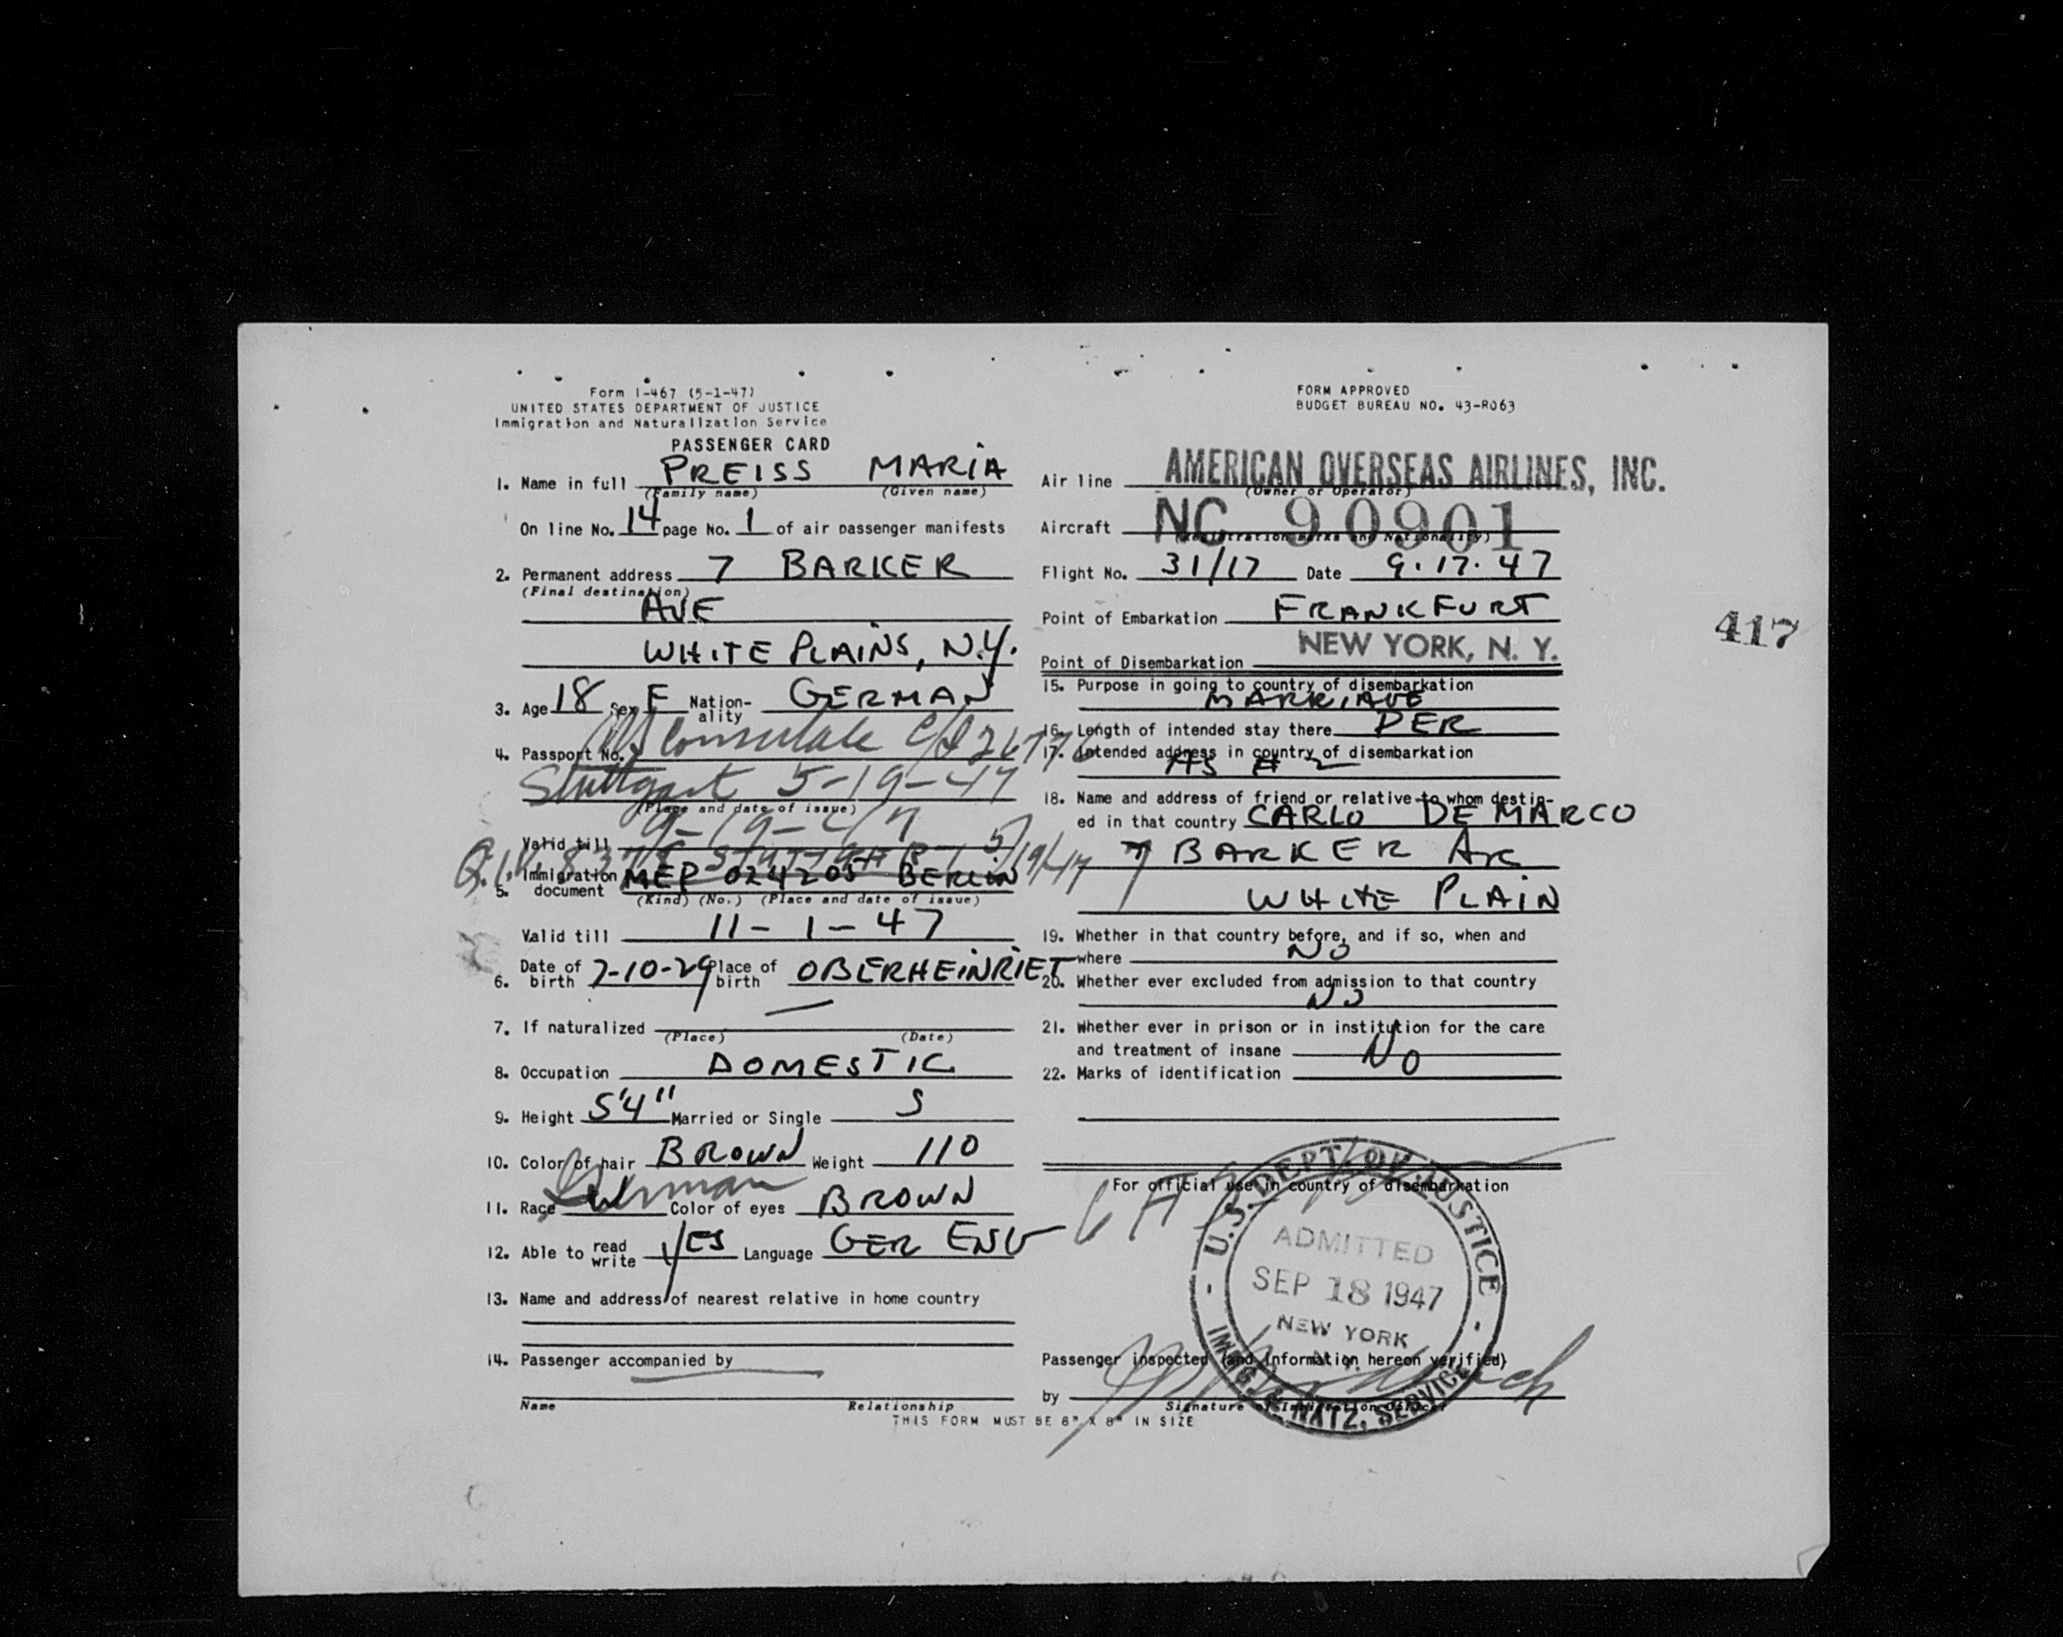 Form I-467 (5-1-47)
UNITED STATES DEPARTMENT OF JUSTICE
Immigration and Naturalization Service
PASSENGER CARD
1. Name in full PREISS MARIA
(Family name) (Given name)
On line No. 14 page No. 1 of air passenger manifests
2. Permanent address 7 BARKER
(Final destination)
AVE
WHITE PLAINS, N.Y.
3. Age 18 Sex F Nation-ality GERMAN
4. Passport No. Consulate
Stuttgart 5-19-47
(Place and date of issue)
Valid till 9-19-47
5/19/47
5. Immigration document MEP 024205 BERLIN
(Kind) (No.) (Place and date of issue)
Valid till 11-1-47
6. Date of birth 7-10-29 Place of birth OBERHEINRIET
7. If naturalized —
(Place) (Date)
8. Occupation DOMESTIC
9. Height 5'4" Married or Single S
10. Color of hair BROWN Weight 110
11. Race W German Color of eyes BROWN
12. Able to read write YES Language GER ENG
13. Name and address of nearest relative in home country
14. Passenger accompanied by
Name Relationship
THIS FORM MUST BE 8" X 8" IN SIZE
FORM APPROVED
BUDGET BUREAU NO. 43-R063
Air line AMERICAN OVERSEAS AIRLINES, INC.
(Owner or Operator)
Aircraft NC 90901
(Registration marks and Nationality)
Flight No. 31/17 Date 9.17.47
Point of Embarkation FRANKFURT
Point of Disembarkation NEW YORK, N. Y.
417
15. Purpose in going to country of disembarkation
MARRIAGE
16. Length of intended stay there PER
17. Intended address in country of disembarkation
AS # 2
18. Name and address of friend or relative to whom destin-
ed in that country CARLO DEMARCO
7 BARKER
WHITE PLAIN
19. Whether in that country before, and if so, when and
where NO
20. Whether ever excluded from admission to that country
NO
21. Whether ever in prison or in institution for the care
and treatment of insane NO
22. Marks of identification
For official use in country of disembarkation
U.S. DEPT. OF JUSTICE
ADMITTED
SEP 18 1947
NEW YORK
N. Y.
IMMIG. & NATZ. SERVICE
Passenger inspected (and information hereon verified)
by
Signature of Immigration Officer